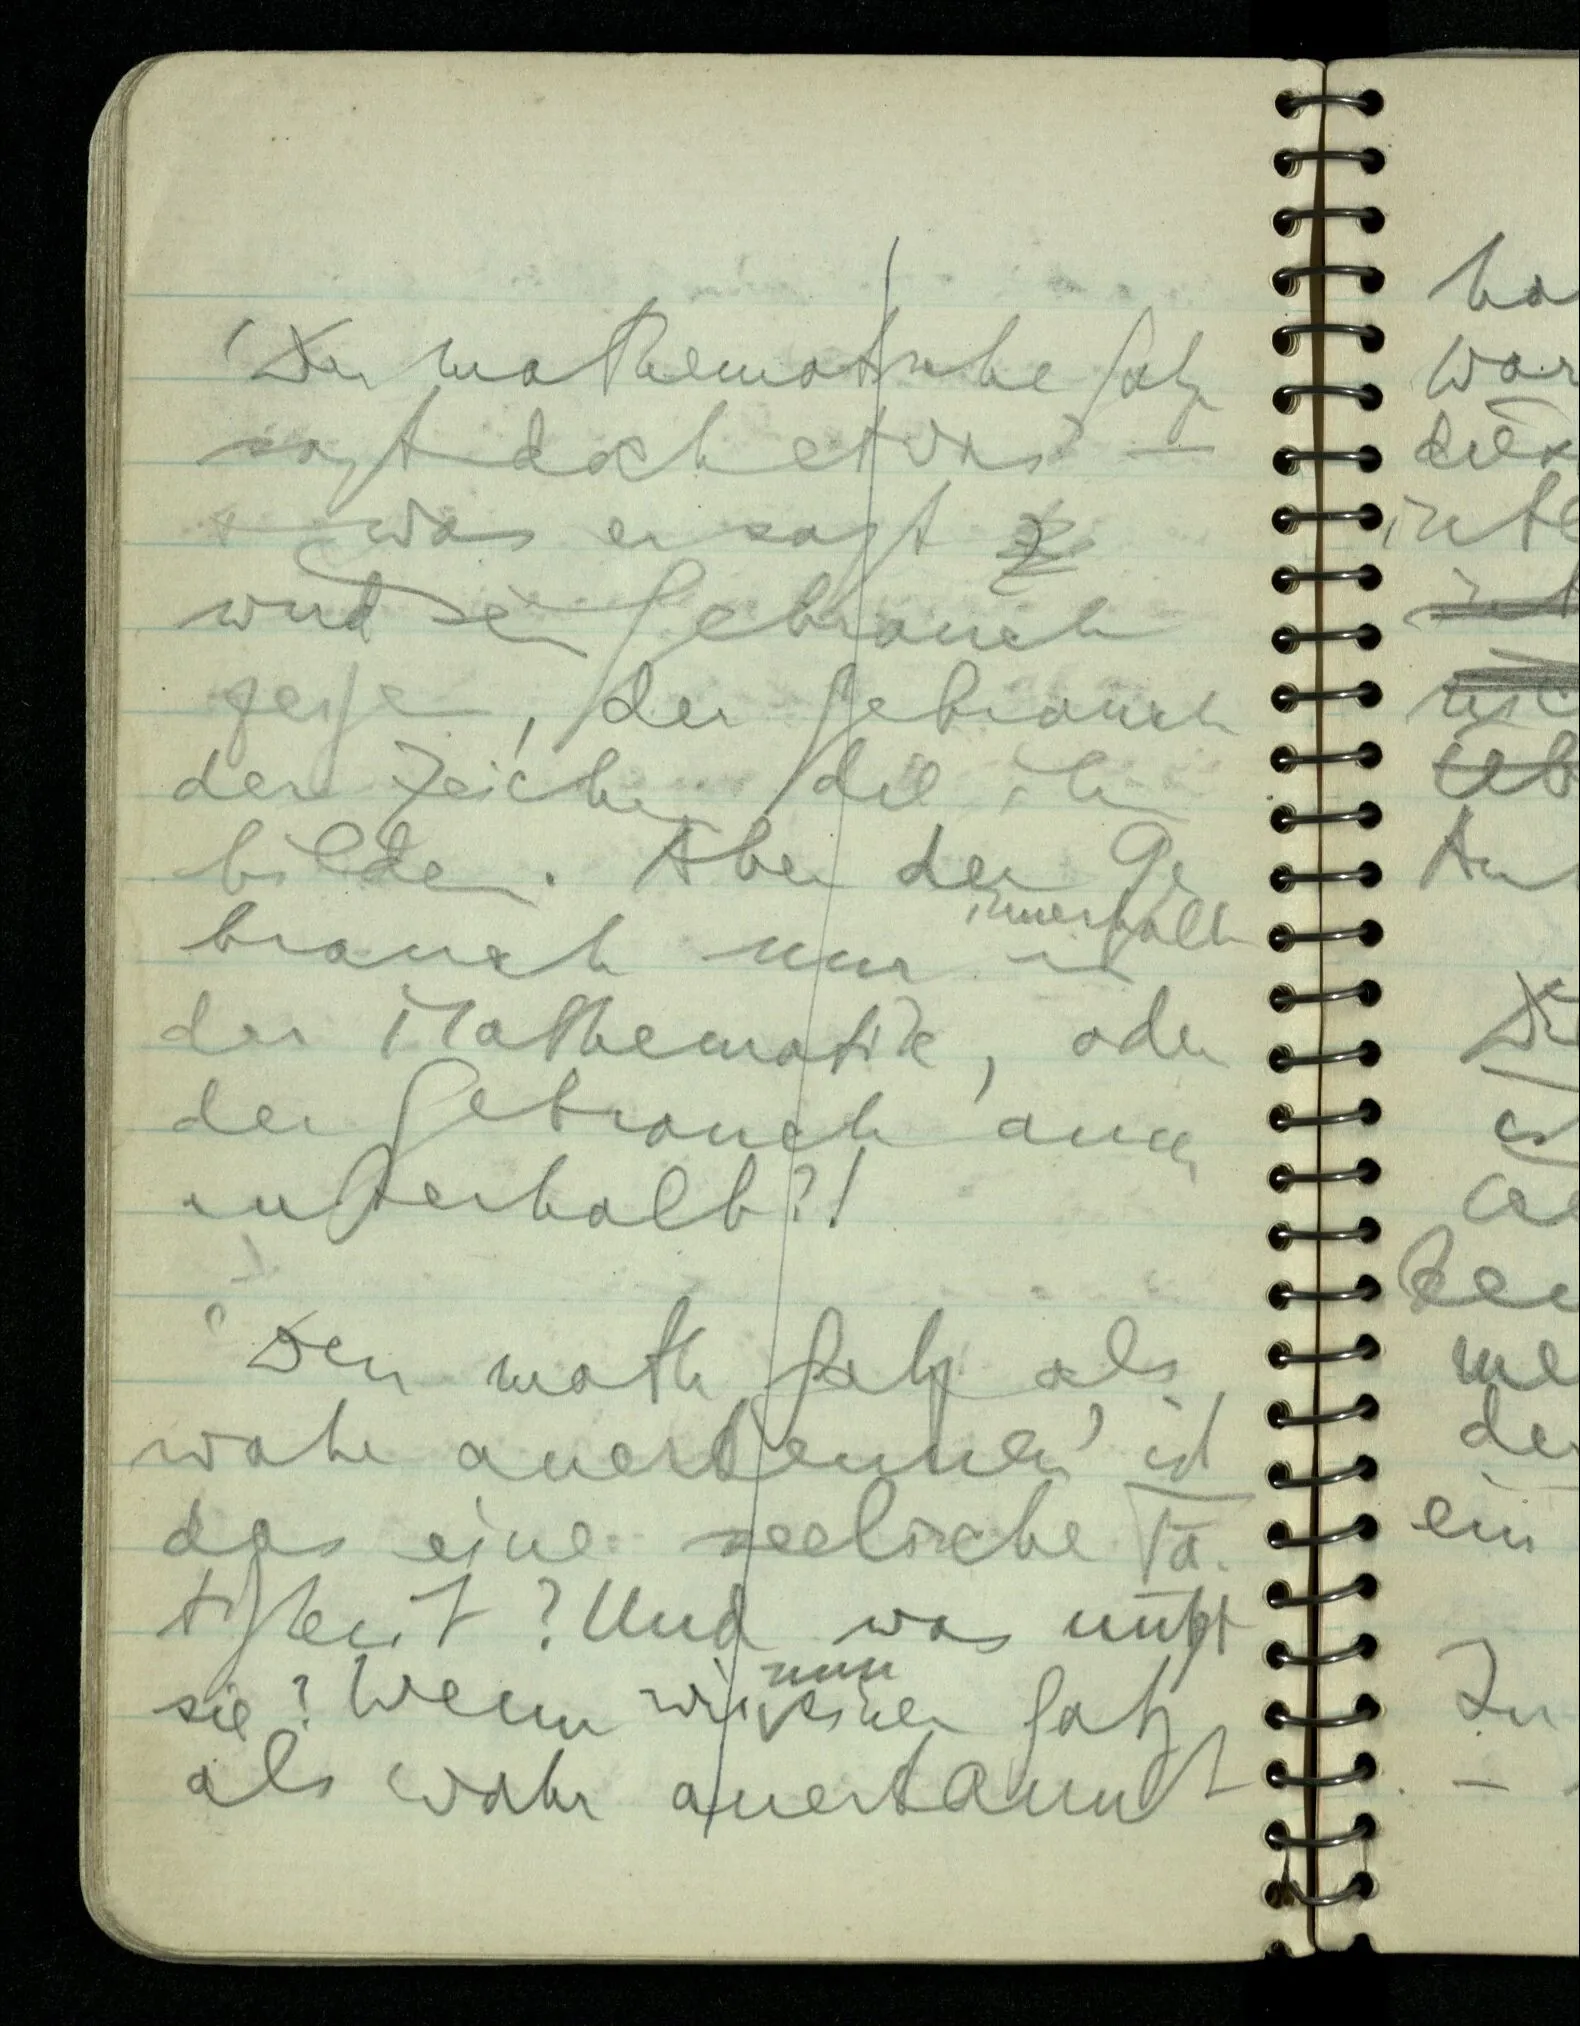 'Der mathematische Satz
sagt doch etwas' –
was er sagt
wird sein Gebrauch
zeigen, der Gebrauch
der Zeichen die ihn
bilden. Aber der Ge
innerhalb
brauch nur in
der Mathematik, oder
der Gebrauch auch
außerhalb?!
'Den math Satz als
wahr anerkennen' ist
das eine seelische Tä-
tigkeit? Und was nützt
sie? Wenn wir nun einen Satz
als wahr anerkannt
ha
war
dies
inte
Üb
An
ist
kei
me
der
ein
In
–